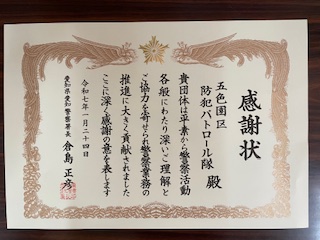 感謝状
五色園区
防犯パトロール隊 殿
貴団体は平素から警察活動
各般にわたり深いご理解と
ご協力を寄せられ警察業務の
推進に大きく貢献されました
ここに深く感謝の意を表します
令和七年一月二十四日
愛知県愛知警察署長 倉島正彦